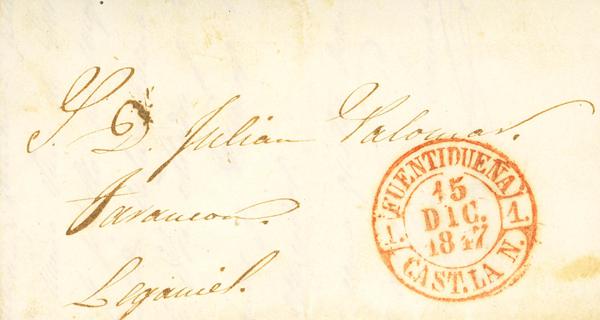 S. D. Julian Palomar.
Tarancon.
Leganiel.
FUENTIDUEÑA
15
DIC.
1847
1. 1.
CAST. LA N.